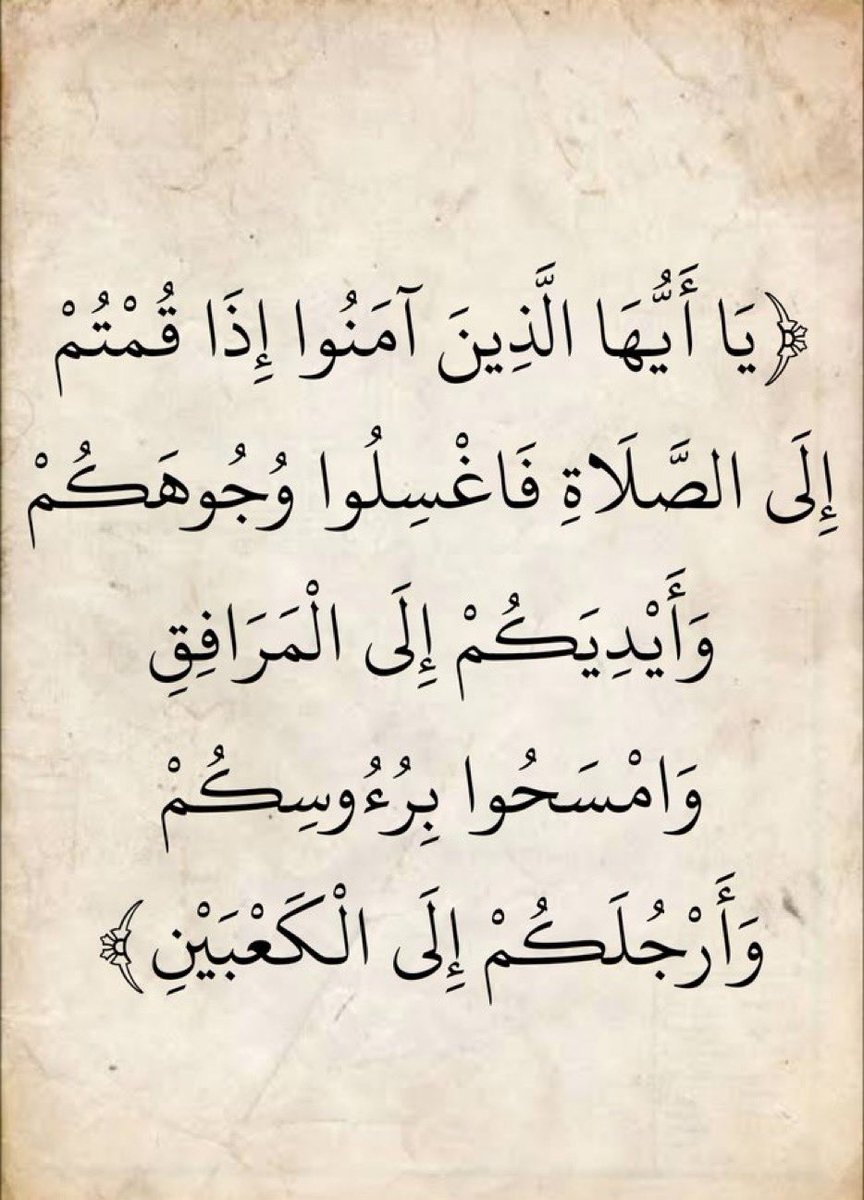 ﴿يَا أَيُّهَا الَّذِينَ آمَنُوا إِذَا قُمْتُمْ
إِلَى الصَّلَاةِ فَاغْسِلُوا وُجُوهَكُمْ
وَأَيْدِيَكُمْ إِلَى الْمَرَافِقِ
وَامْسَحُوا بِرُءُوسِكُمْ
وَأَرْجُلَكُمْ إِلَى الْكَعْبَيْنِ﴾